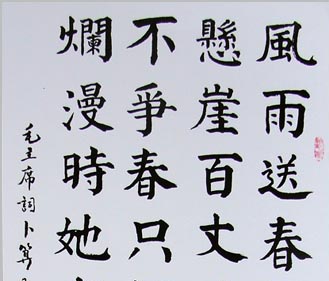 風雨送春
懸崖百丈
不爭春只
爛漫時她
毛主席詞卜算